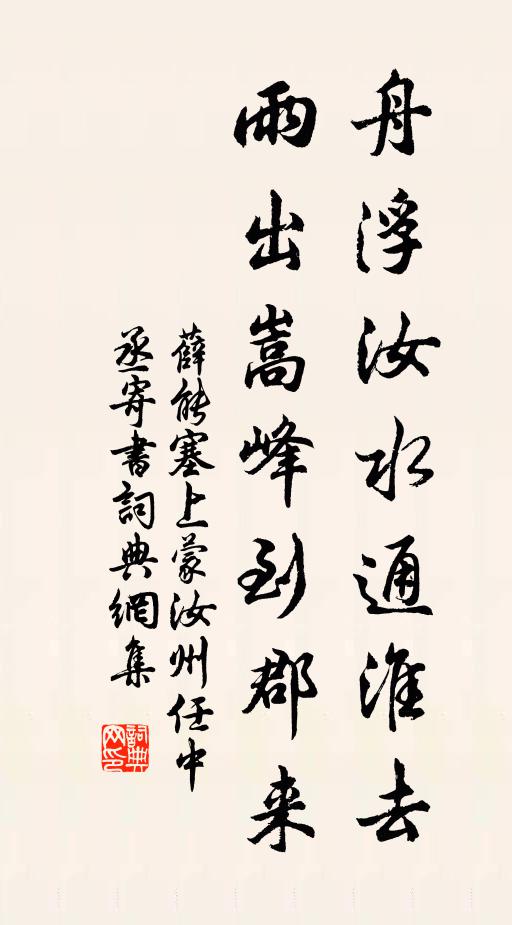 舟浮汝水通淮去
雨出嵩峰到郡来
薛能塞上蒙汝州任中
丞寄書詞典網集
詞典网印